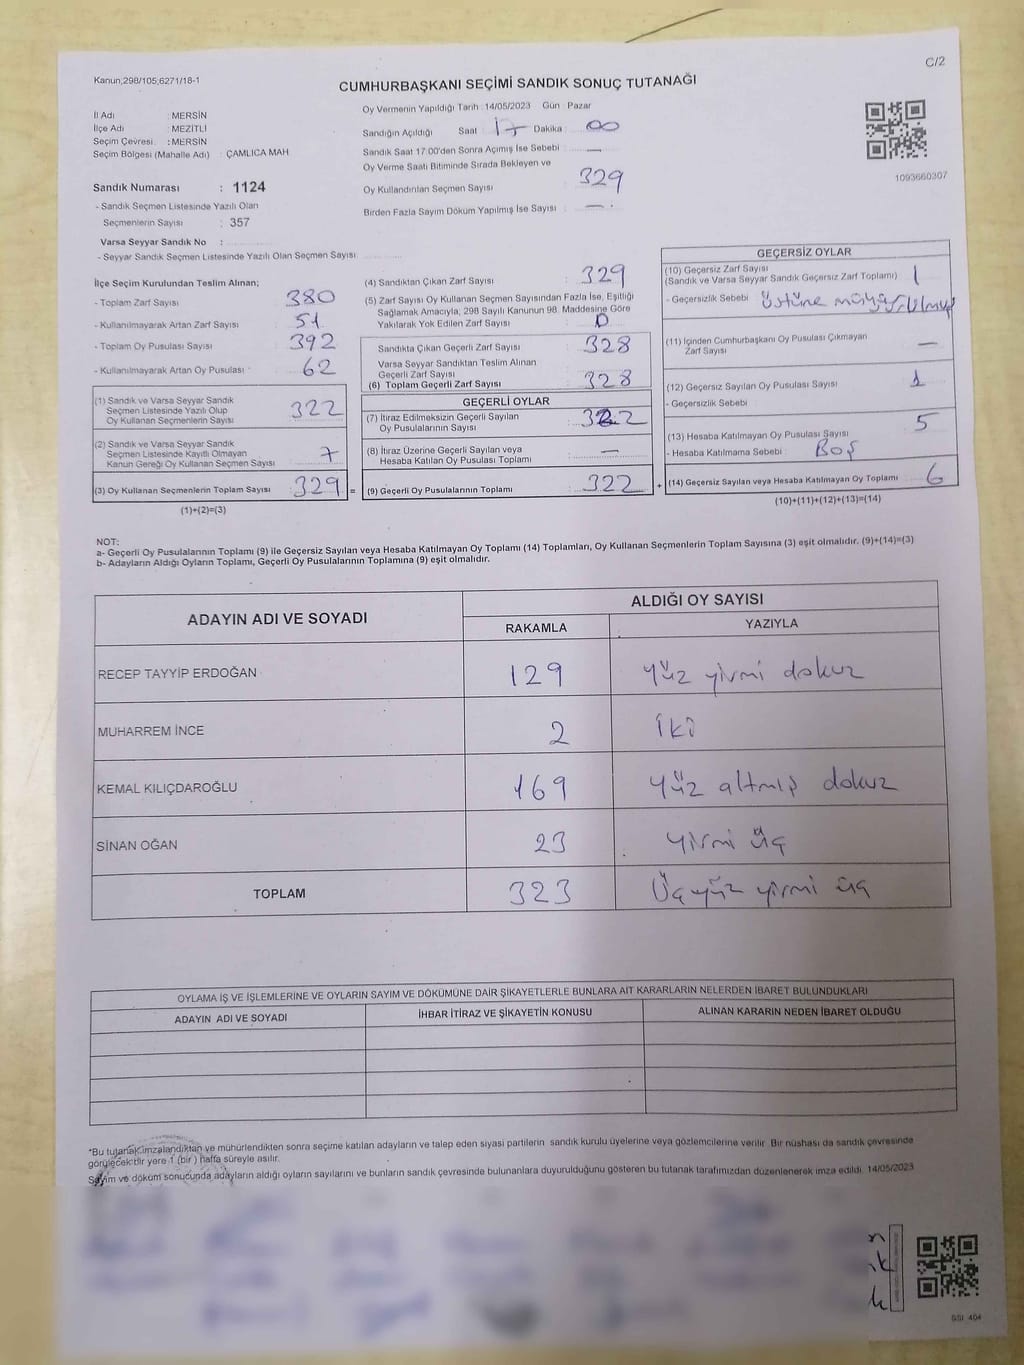 Kanun,298/105,6271/18-1
C/2
CUMHURBAŞKANI SEÇİMİ SANDIK SONUÇ TUTANAĞI
Oy Vermenin Yapıldığı Tarih :14/05/2023 Gün : Pazar
İl Adı : MERSİN
İlçe Adı : MEZİTLİ
Seçim Çevresi : MERSİN
Seçim Bölgesi (Mahalle Adı) : ÇAMLICA MAH
Sandığın Açıldığı Saat 17 Dakika : 00
Sandık Saat 17:00'den Sonra Açımış İse Sebebi : —
Oy Verme Saati Bitiminde Sırada Bekleyen ve
Oy Kullandırılan Seçmen Sayısı : 329
Birden Fazla Sayım Döküm Yapılmış İse Sayısı : —
1093660307
Sandık Numarası : 1124
- Sandık Seçmen Listesinde Yazılı Olan
Seçmenlerin Sayısı : 357
Varsa Seyyar Sandık No :
- Seyyar Sandık Seçmen Listesinde Yazılı Olan Seçmen Sayısı
İlçe Seçim Kurulundan Teslim Alınan;
- Toplam Zarf Sayısı : 380
- Kullanılmayarak Artan Zarf Sayısı : 51
- Toplam Oy Pusulası Sayısı : 392
- Kullanılmayarak Artan Oy Pusulası : 62
(1) Sandık ve Varsa Seyyar Sandık
Seçmen Listesinde Yazılı Olup
Oy Kullanan Seçmenlerin Sayısı : 322
(2) Sandık ve Varsa Seyyar Sandık
Seçmen Listesinde Kayıtlı Olmayan
Kanun Gereği Oy Kullanan Seçmen Sayısı : 7
(3) Oy Kullanan Seçmenlerin Toplam Sayısı : 329 =
(1)+(2)=(3)
(4) Sandıktan Çıkan Zarf Sayısı : 329
(5) Zarf Sayısı Oy Kullanan Seçmen Sayısından Fazla İse, Eşitliği
Sağlamak Amacıyla, 298 Sayılı Kanunun 98. Maddesine Göre
Yakılarak Yok Edilen Zarf Sayısı :
Sandıkta Çıkan Geçerli Zarf Sayısı : 328
Varsa Seyyar Sandıktan Teslim Alınan
Geçerli Zarf Sayısı
(6) Toplam Geçerli Zarf Sayısı : 328
GEÇERLİ OYLAR
(7) İtiraz Edilmeksizin Geçerli Sayılan
Oy Pusulalarının Sayısı : 322
(8) İtiraz Üzerine Geçerli Sayılan veya
Hesaba Katılan Oy Pusulası Toplamı : —
(9) Geçerli Oy Pusulalarının Toplamı : 322 +
GEÇERSİZ OYLAR
(10) Geçersiz Zarf Sayısı
(Sandık ve Varsa Seyyar Sandık Geçersiz Zarf Toplamı) : 1
- Geçersizlik Sebebi : Üstüne
(11) İçinden Cumhurbaşkanı Oy Pusulası Çıkmayan
Zarf Sayısı : —
(12) Geçersiz Sayılan Oy Pusulası Sayısı : 1
- Geçersizlik Sebebi :
(13) Hesaba Katılmayan Oy Pusulası Sayısı : 5
- Hesaba Katılmama Sebebi : Boş
(14) Geçersiz Sayılan veya Hesaba Katılmayan Oy Toplamı : 6
(10)+(11)+(12)+(13)=(14)
NOT:
a- Geçerli Oy Pusulalarının Toplamı (9) ile Geçersiz Sayılan veya Hesaba Katılmayan Oy Toplamı (14) Toplamları, Oy Kullanan Seçmenlerin Toplam Sayısına (3) eşit olmalıdır. (9)+(14)=(3)
b- Adayların Aldığı Oyların Toplamı, Geçerli Oy Pusulalarının Toplamına (9) eşit olmalıdır.
ADAYIN ADI VE SOYADI
ALDIĞI OY SAYISI
RAKAMLA YAZIYLA
RECEP TAYYİP ERDOĞAN 129 Yüz yirmi dokuz
MUHARREM İNCE 2 İki
KEMAL KILIÇDAROĞLU 169 Yüz altmış dokuz
SİNAN OĞAN 23 Yirmi üç
TOPLAM 323 Üçyüz yirmi üç
OYLAMA İŞ VE İŞLEMLERİNE VE OYLARIN SAYIM VE DÖKÜMÜNE DAİR ŞİKAYETLERLE BUNLARA AİT KARARLARIN NELERDEN İBARET BULUNDUKLARI
ADAYIN ADI VE SOYADI İHBAR İTİRAZ VE ŞİKAYETİN KONUSU ALINAN KARARIN NEDEN İBARET OLDUĞU
*Bu tutanak imzalandıktan ve mühürlendikten sonra seçime katılan adayların ve talep eden siyasi partilerin sandık kurulu üyelerine veya gözlemcilerine verilir. Bir nüshası da sandık çevresinde
görülecek bir yere 1 (bir) hafta süreyle asılır.
Sayım ve döküm sonucunda adayların aldığı oyların sayılarını ve bunların sandık çevresinde bulunanlara duyurulduğunu gösteren bu tutanak tarafımızdan düzenlenerek imza edildi. 14/05/2023